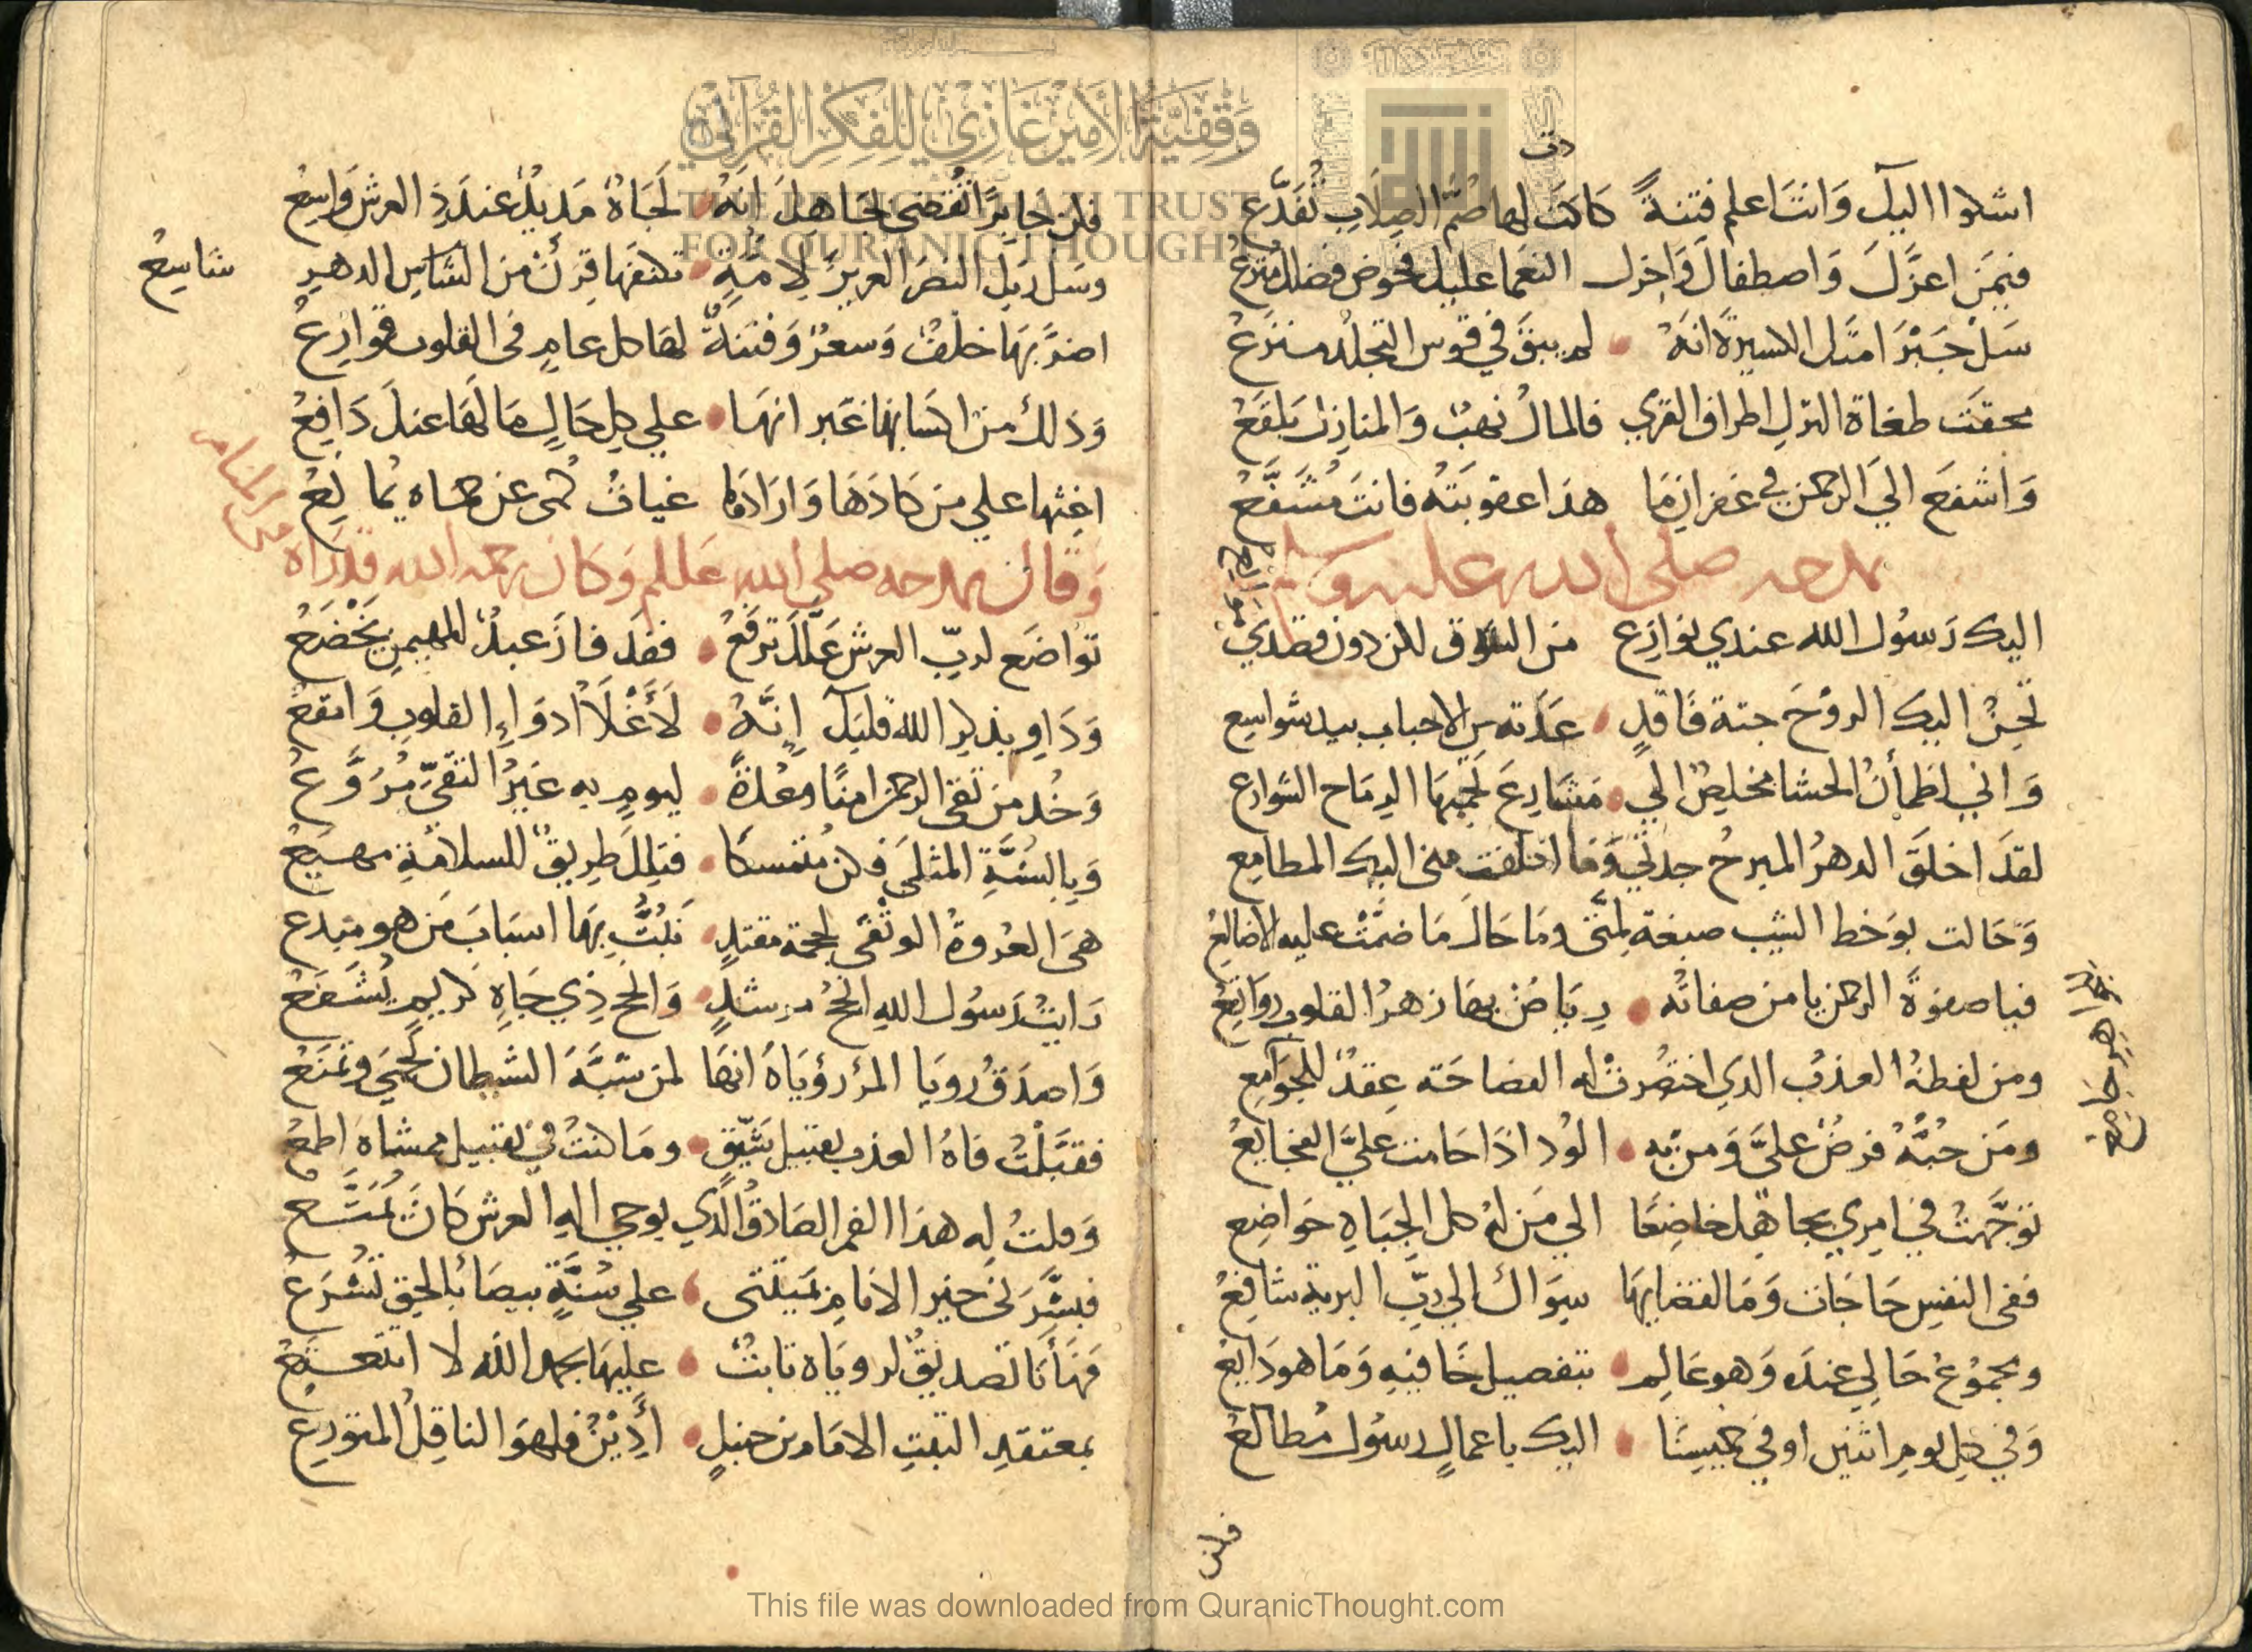 اشكوا اليك وَانتَ اعلم فِتنةً كَادَت لها صُمّ الصِلَابِ تُقَدّع
فبِمَن اعزَّكَ وَاصطفاكَ وَاجزل النعما عليك فحوض فضلك مترع
سَل جَبْرَ امتك الكسيرة انهُ لم يبقَ في قوس التجلد منزع
محقت طغاة الترك اطراف القرى فالمال نهبٌ وَالمنازل بَلقَعُ
وَاشفع الى الرحمن في غفران مَا هذا عقوبتهُ فانتَ مُشَفَّعُ
يمدحه صلى الله عليه وسلم
اليك رَسُول الله عندي نوازِع من الشوق لكن دون قصدي
تحِنُّ اليك الروْحَ حنة فَاقدٍ عَدَته من الاحباب بيد شواسِع
وَاني لظمأنُ الحشا مخلِصٌ الى مشَارِعَ تحميهَا الرِمَاح الشوارع
لقد اخلقَ الدهرُ المبرحُ جدتي وَمَا اخلقت منى اليك المطامِع
وَحَالت بوَخط الشيب صبغة لمتى ومَا حَالَ مَا ضمَّت عليه الاضالِعُ
فيا صفوةَ الرحمن يا من صفاتُه رِيَاضٌ بهَا زهرُ القلوب روَاتِعُ
ومن لفظهُ العذب الذي اختُصِرت له الفصاحَة عِقدٌ للجوَامِع
ومَن حُبُّهُ فرضٌ عليَّ وَمن به الوذ اذَا حَامت عليَّ الفجايعُ
توجَّهتُ في امري بجاهك خاضِعًا الى مَن لهُ كل الجِبَاهِ خوَاضِع
ففى النفسِ حَاجَات وَمَا لقضايهَا سِوَاك الى ربِّ البرية شافِعُ
ومجموعُ حَالي عنده وَهو عَالِم بتفصيل خافيهِ وَمَا هو ذايعُ
وَفي كلِ يومِ اثنين او في خميسِنَا اليك باعمالٍ رسُول مُطالعُ
فكن
فكن جَابِرًا نقصى بجَاهك انهُ لَجَاهٌ مَديدٌ عندَ ذِي العرش وَاسِعُ
وسَل ربكَ النصرَ العزيزَ لامةٍ تكنفهَا قرنٌ من الشاسِ الدهرِ
شاسِعُ
اضرَّ بهَا خلفٌ وَسعرٌ وَفتنةٌ لهَا كل عامٍ فى القلوب قوَارِعُ
وَذلك من اكسَابها غير انهَا على كلِ حَالٍ مَا لهَا عنك دَافِعُ
اغثها على من كَادَهَا وَارَادهَا غياثُ كمى عن حماه يمانعُ
وَقال يمدحه صلى الله عليه وسلم وَكان رحمه الله قد رَاه
في المنام
توَاضع لربِّ العرش عَلَّكَ ترفعُ فقد فازَ عبدٌ للمهيمن يخضعُ
وَدَاوِ بذكر الله قلبك إِنَّهُ لَأَعْلَا ادوَاءِ القلوبِ وَانفعُ
وَخُذ من تُقى الرحمن امنًا وعُدةً ليومٍ به غيرُ التقىِّ مُرَوَّعُ
وَبالسُنَّةِ المثلى فكن مُتمسكًا فتلكَ طريقٌ للسلامةِ مهيعُ
هى العُروةُ الوثقى لحجة مقتدٍ تبتُّ بِهَا اسبابَ مَن هو مبتدع
رَايتُ رَسُول اللهِ انجحُ مرشدٍ وَانجح ذِي جَاهٍ كريمٍ يُشفعُ
وَاصدَقُ رويا المرء رؤيَاهُ انهَا لمن شبَّهَ الشيطان تحمى وتمنعُ
فقبَّلتُ فاهُ العذب تقبيل شَيِّقٍ ومَا كنتُ في تقبيل ممشاه اطمعُ
وَقلتُ له هذا الفم الصَادقُ الَّذي يوحى اله العرش كَان يُمتَّعُ
فبشَّرَنى خير الانامِ بمَيتتى على سُنَّةٍ بيضَا بالحقِ تشرَعُ
فهَأنَا تصديقٌ لرويَاه ثابتٌ عليهَا بحمد الله لا اتتعتعُ
بمعتقدِ الثبتِ الامَام بن حنبلٍ أَدِيْنُ فهو الناقِلُ المتورِعُ
This file was downloaded from QuranicThought.com
وَقْفِيَّةُ الأَمِيرِ غَازِي لِلْفِكْرِ القُرْآنِيِّ
THE PRINCE GHAZI TRUST
FOR QUR'ANIC THOUGHT